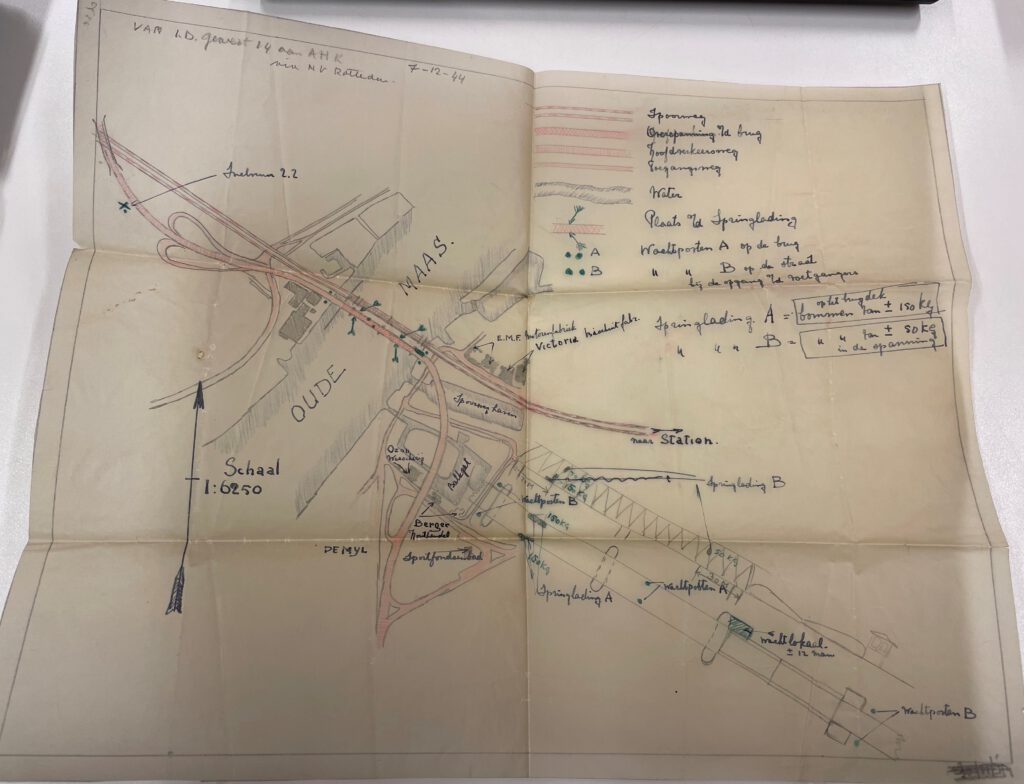 VAN I.D. gewest 14 aan AHK
via MV Rotterdam
7-12-44
Spoorweg
Overspanning v/d brug
Hoofdverkeersweg
Toegangsweg
Water
Plaats v/d Springlading
A Wachtposten A op de brug
B " " B op de straat
bij de opgang v/d voetgangers
Springlading A = op het brugdek
bommen van ± 150 kg
" " " B = " " van ± 50 kg
in de spanning
2.2
MAAS.
OUDE
E.M.F. Motorenfabriek
Victoria
Spoorweg haven
naar Station.
Schaal
1:6250
Berger
DE MYL
Sportfondsenbad
Wachtposten B
Springlading B
150 Kg
150 Kg
50 KG
Springlading A
Wachtposten A
Wachtlokaal
± 12 man
Wachtposten B